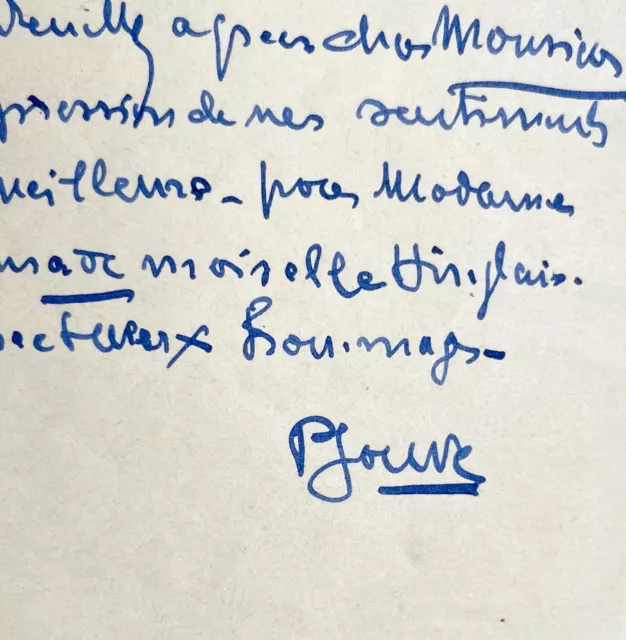 Veuillez agréer cher Monsieur
pression de mes sentiments
meilleurs – pour Madame
mademoiselle Hinglais.
pectueux hommages –
PJouve